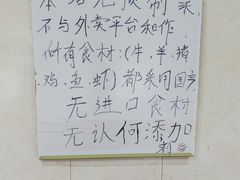 本店无预制菜
不与外卖平台和作,
所有食材:(牛,羊,猪
鸡、鱼虾)都采用国产
无进口食材
无认何添加